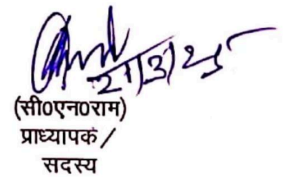 21/3/25
(सी0एन0राम)
प्राध्यापक/
सदस्य